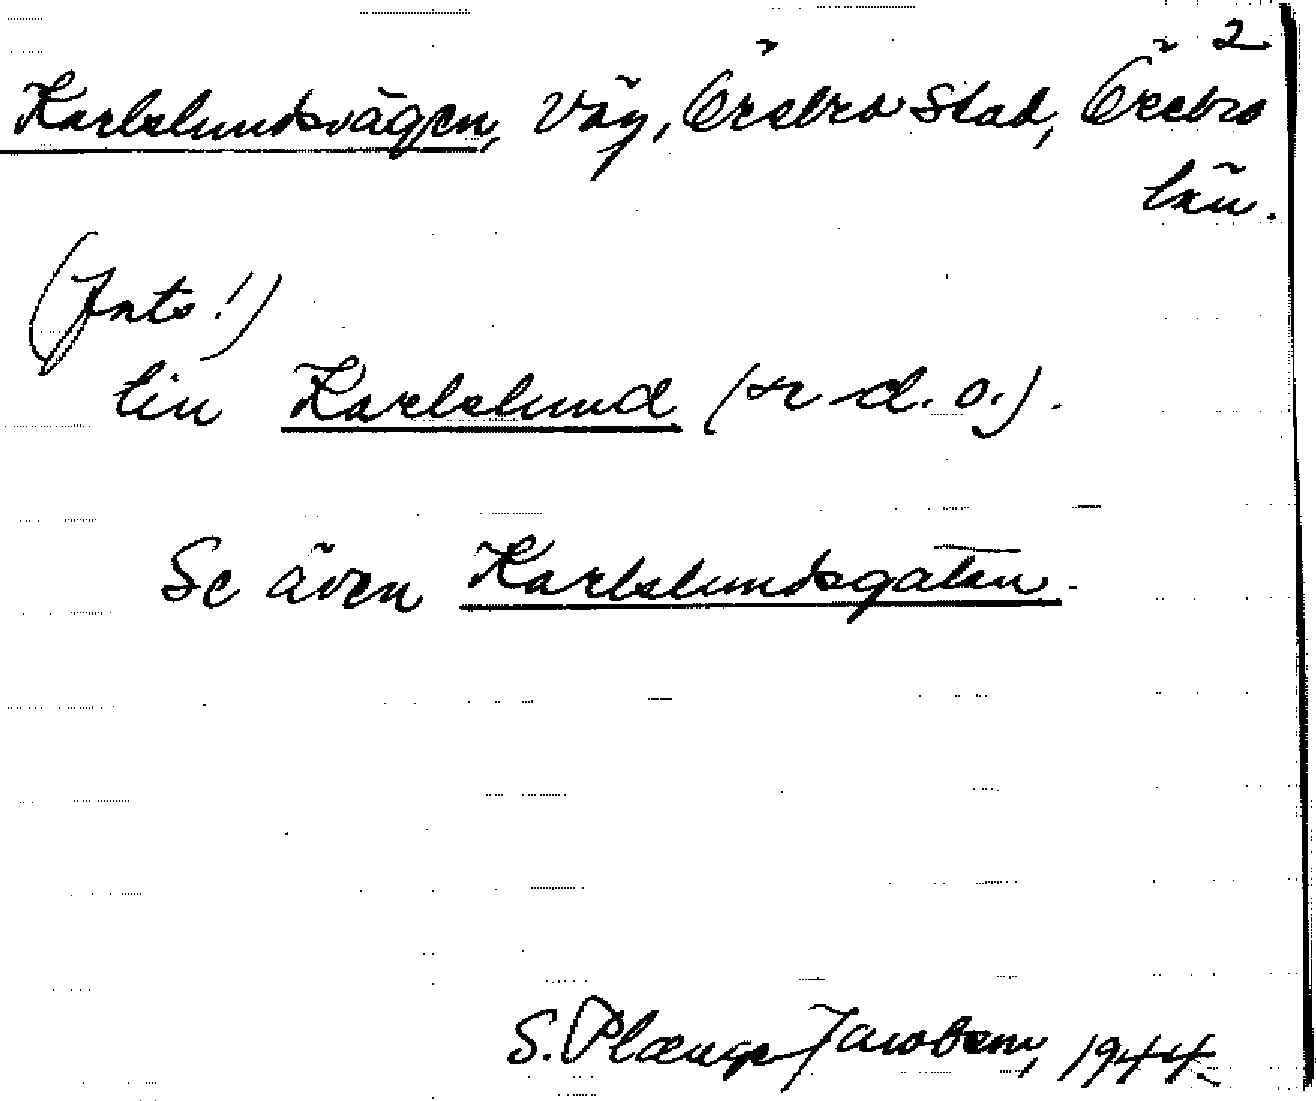 2
Karlslundsvägen, väg, Örebro stad, Örebro
län.
(Jnts!)
till Karlslund (se d. o.).
Se även Karlslundsgatan.
S. Plænge Jacobson, 1944.